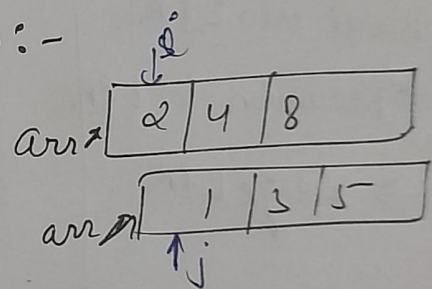 :-
i
arr 2 4 8
arr 1 3 5
j